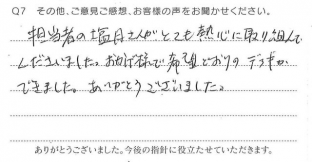 Q7 その他、ご意見ご感想、お客様の声をお聞かせください。
担当者の塩月さんがとても熱心に取り組んで
くださいました。お陰様で希望どおりのデッキが
できました。ありがとうございました。
ありがとうございました。今後の指針に役立たせていただきます。